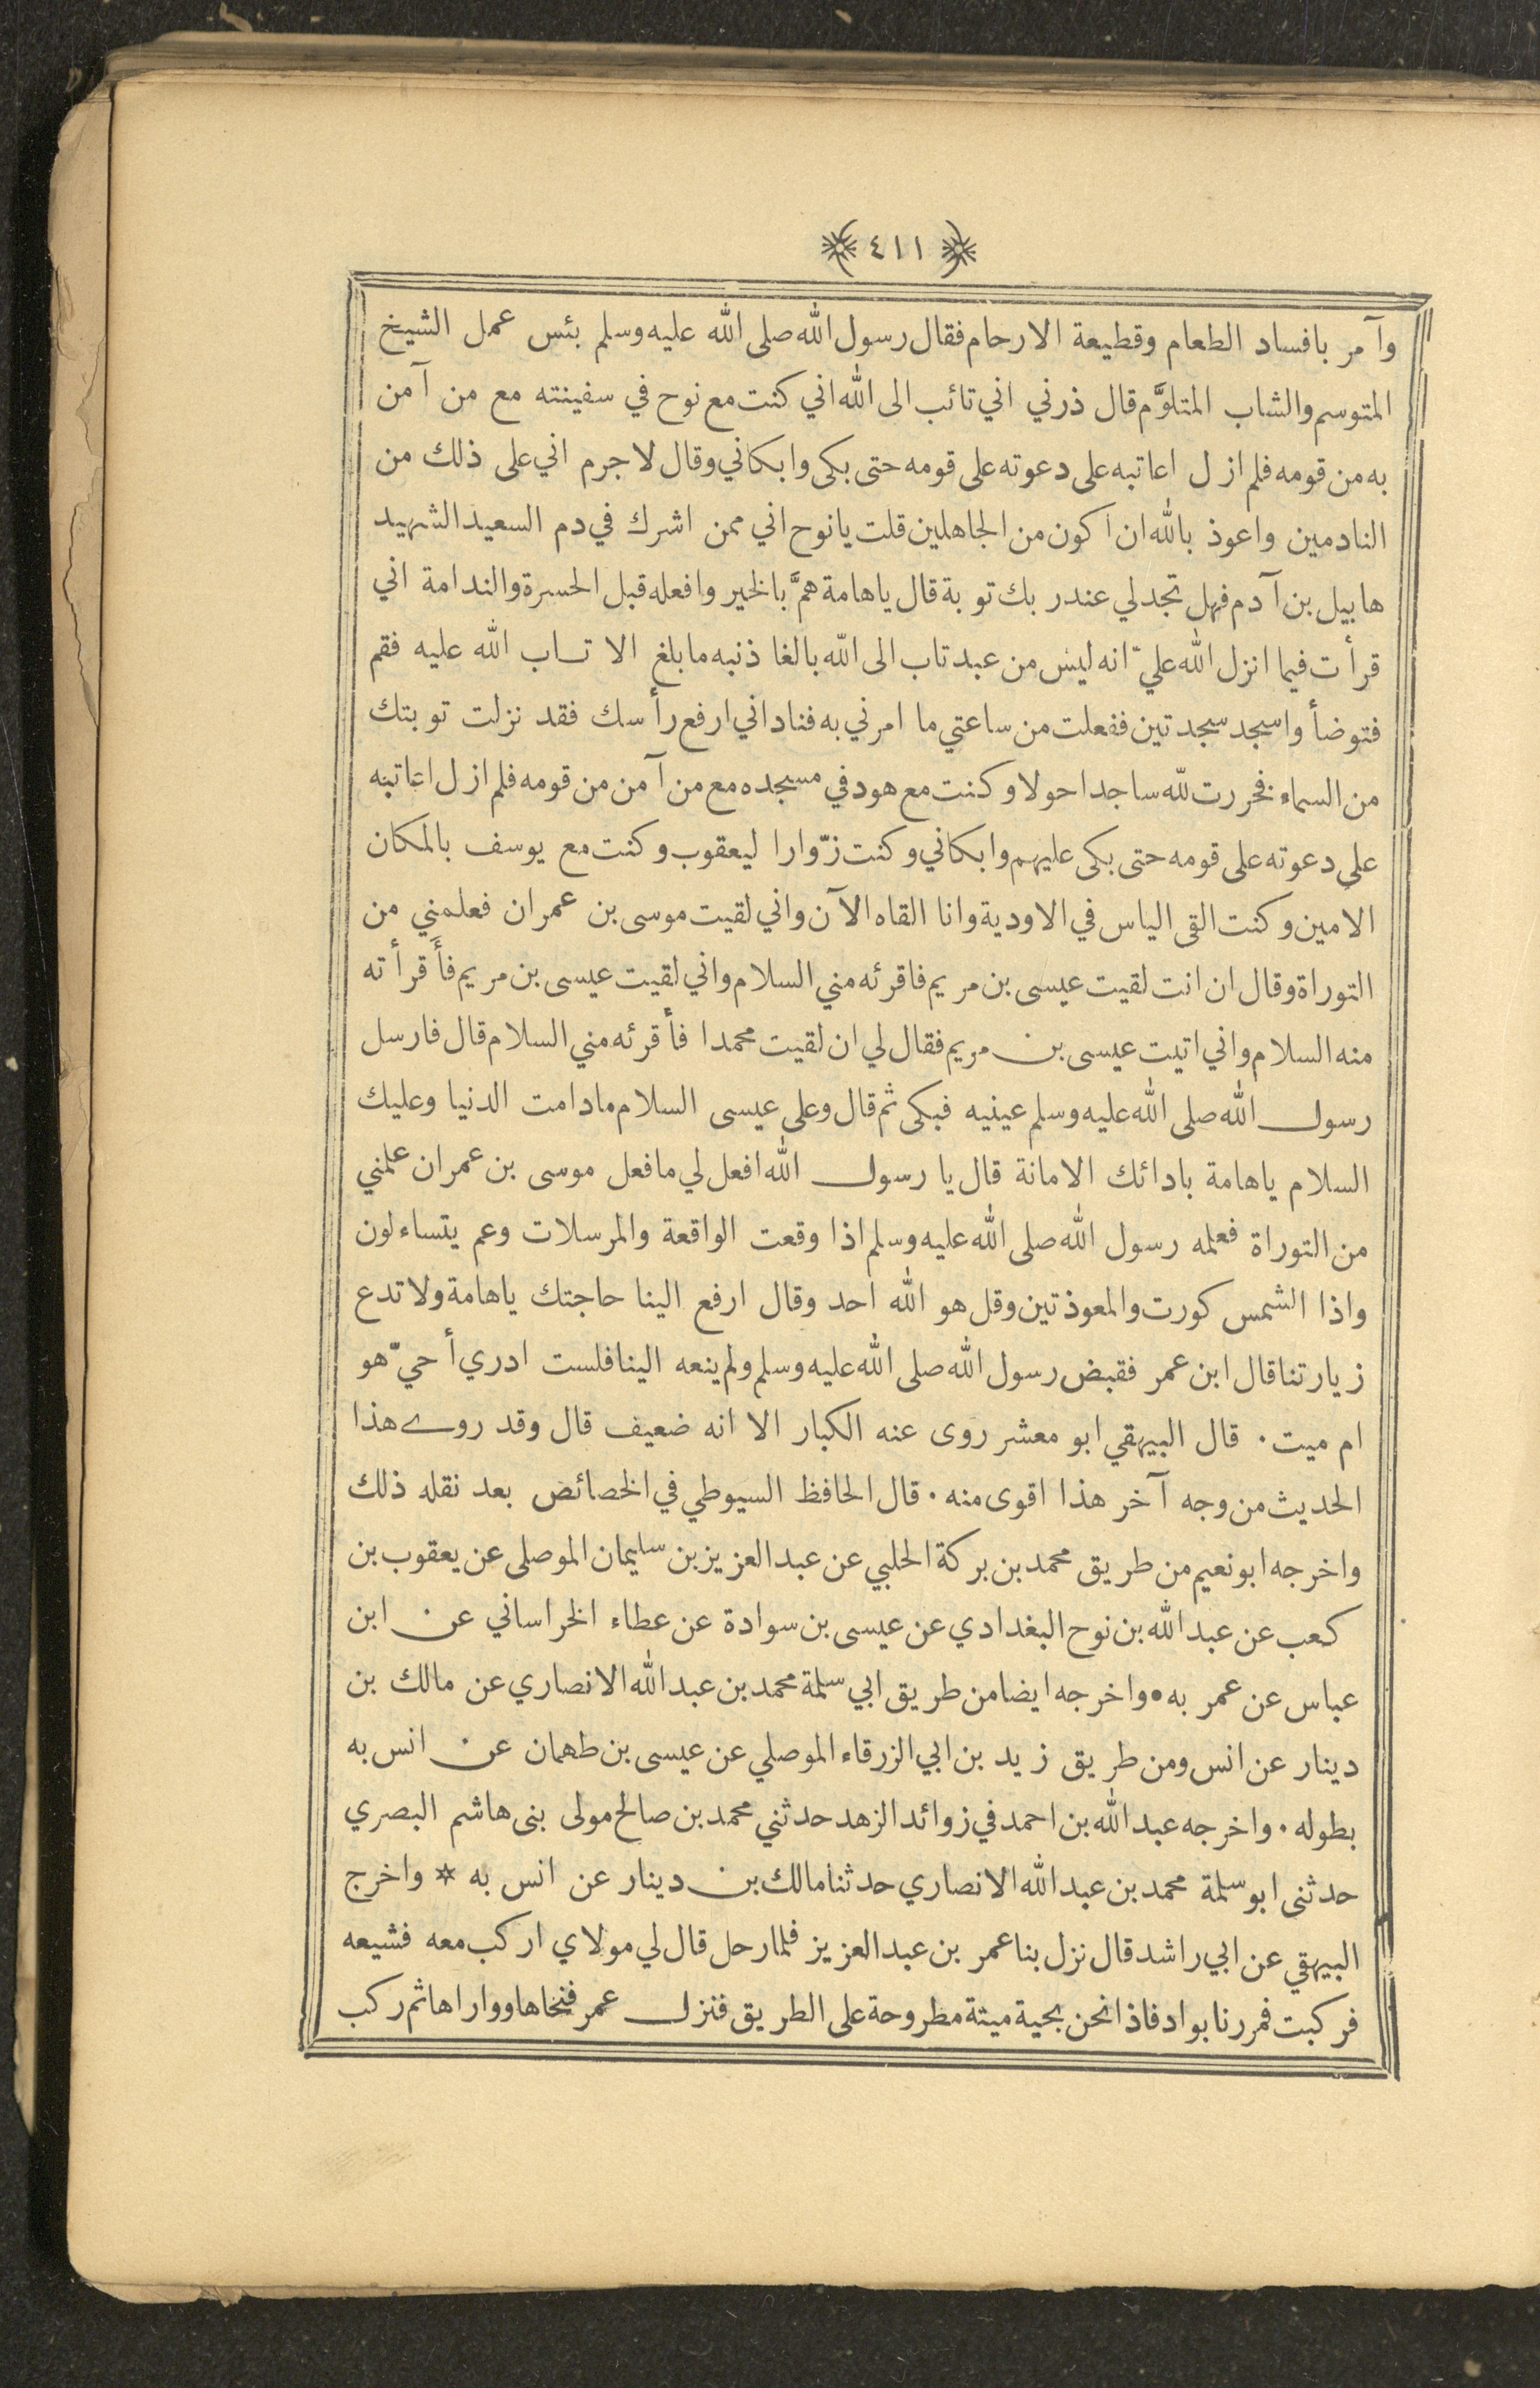 ﴿ ٤١١ ﴾
وآمر بافساد الطعام وقطيعة الارحام فقال رسول الله صلى الله عليه وسلم بئس عمل الشيخ
المتوسم والشاب المتلوَّم قال ذرني اني تائب الى الله اني كنت مع نوح في سفينته مع من آمن
به من قومه فلم ازل اعاتبه على دعوته على قومه حتى بكى وابكاني وقال لا جرم اني على ذلك من
النادمين واعوذ بالله ان اكون من الجاهلين قلت يا نوح اني ممن اشرك في دم السعيد الشهيد
هابيل بن آدم فهل تجد لي عند ربك توبة قال ياهامة همَّ بالخير وافعله قبل الحسرة والندامة اني
قرأت فيما انزل الله عليّ انه ليس من عبد تاب الى الله بالغا ذنبه ما بلغ الا تاب الله عليه فقم
فتوضأ واسجد سجدتين ففعلت من ساعتي ما امرني به فناداني ارفع رأسك فقد نزلت توبتك
من السماء فخررت لله ساجدا حولا وكنت مع هود في مسجده مع من آمن من قومه فلم ازل اعاتبه
على دعوته على قومه حتى بكى عليهم وابكاني وكنت زوّارا ليعقوب وكنت مع يوسف بالمكان
الامين وكنت القى الياس في الاودية وانا القاه الآن واني لقيت موسى بن عمران فعلمني من
التوراة وقال ان انت لقيت عيسى بن مريم فاقرئه مني السلام واني لقيت عيسى بن مريم فأَقرأته
منه السلام واني اتيت عيسى بن مريم فقال لي ان لقيت محمدا فأقرئه مني السلام قال فارسل
رسول الله صلى الله عليه وسلم عينيه فبكى ثم قال وعلى عيسى السلام مادامت الدنيا وعليك
السلام ياهامة بادائك الامانة قال يا رسول الله افعل لي ما فعل موسى بن عمران علمني
من التوراة فعلمه رسول الله صلى الله عليه وسلم اذا وقعت الواقعة والمرسلات وعم يتساءلون
واذا الشمس كورت والمعوذتين وقل هو الله احد وقال ارفع الينا حاجتك ياهامة ولا تدع
زيارتنا قال ابن عمر فقبض رسول الله صلى الله عليه وسلم ولم ينعه الينا فلست ادري أحيّ هو
ام ميت. قال البيهقي ابو معشر روى عنه الكبار الا انه ضعيف قال وقد روى هذا
الحديث من وجه آخر هذا اقوى منه. قال الحافظ السيوطي في الخصائص بعد نقله ذلك
واخرجه ابونعيم من طريق محمد بن بركة الحلبي عن عبد العزيز بن سليمان الموصلى عن يعقوب بن
كعب عن عبد الله بن نوح البغدادي عن عيسى بن سوادة عن عطاء الخراساني عن ابن
عباس عن عمر به • واخرجه ايضا من طريق ابي سلمة محمد بن عبد الله الانصاري عن مالك بن
دينار عن انس ومن طريق زيد بن ابي الزرقاء الموصلي عن عيسى بن طهمان عن انس به
بطوله. واخرجه عبد الله بن احمد في زوائد الزهد حدثني محمد بن صالح مولى بنى هاشم البصري
حدثنى ابو سلمة محمد بن عبد الله الانصاري حدثنا مالك بن دينار عن انس به * واخرج
البيهقي عن ابي راشد قال نزل بنا عمر بن عبد العزيز فلما رحل قال لي مولاي اركب معه فشيعه
فركبت فمررنا بواد فاذا نحن بحية ميتة مطروحة على الطريق فنزل عمر فنحاها وواراها ثم ركب